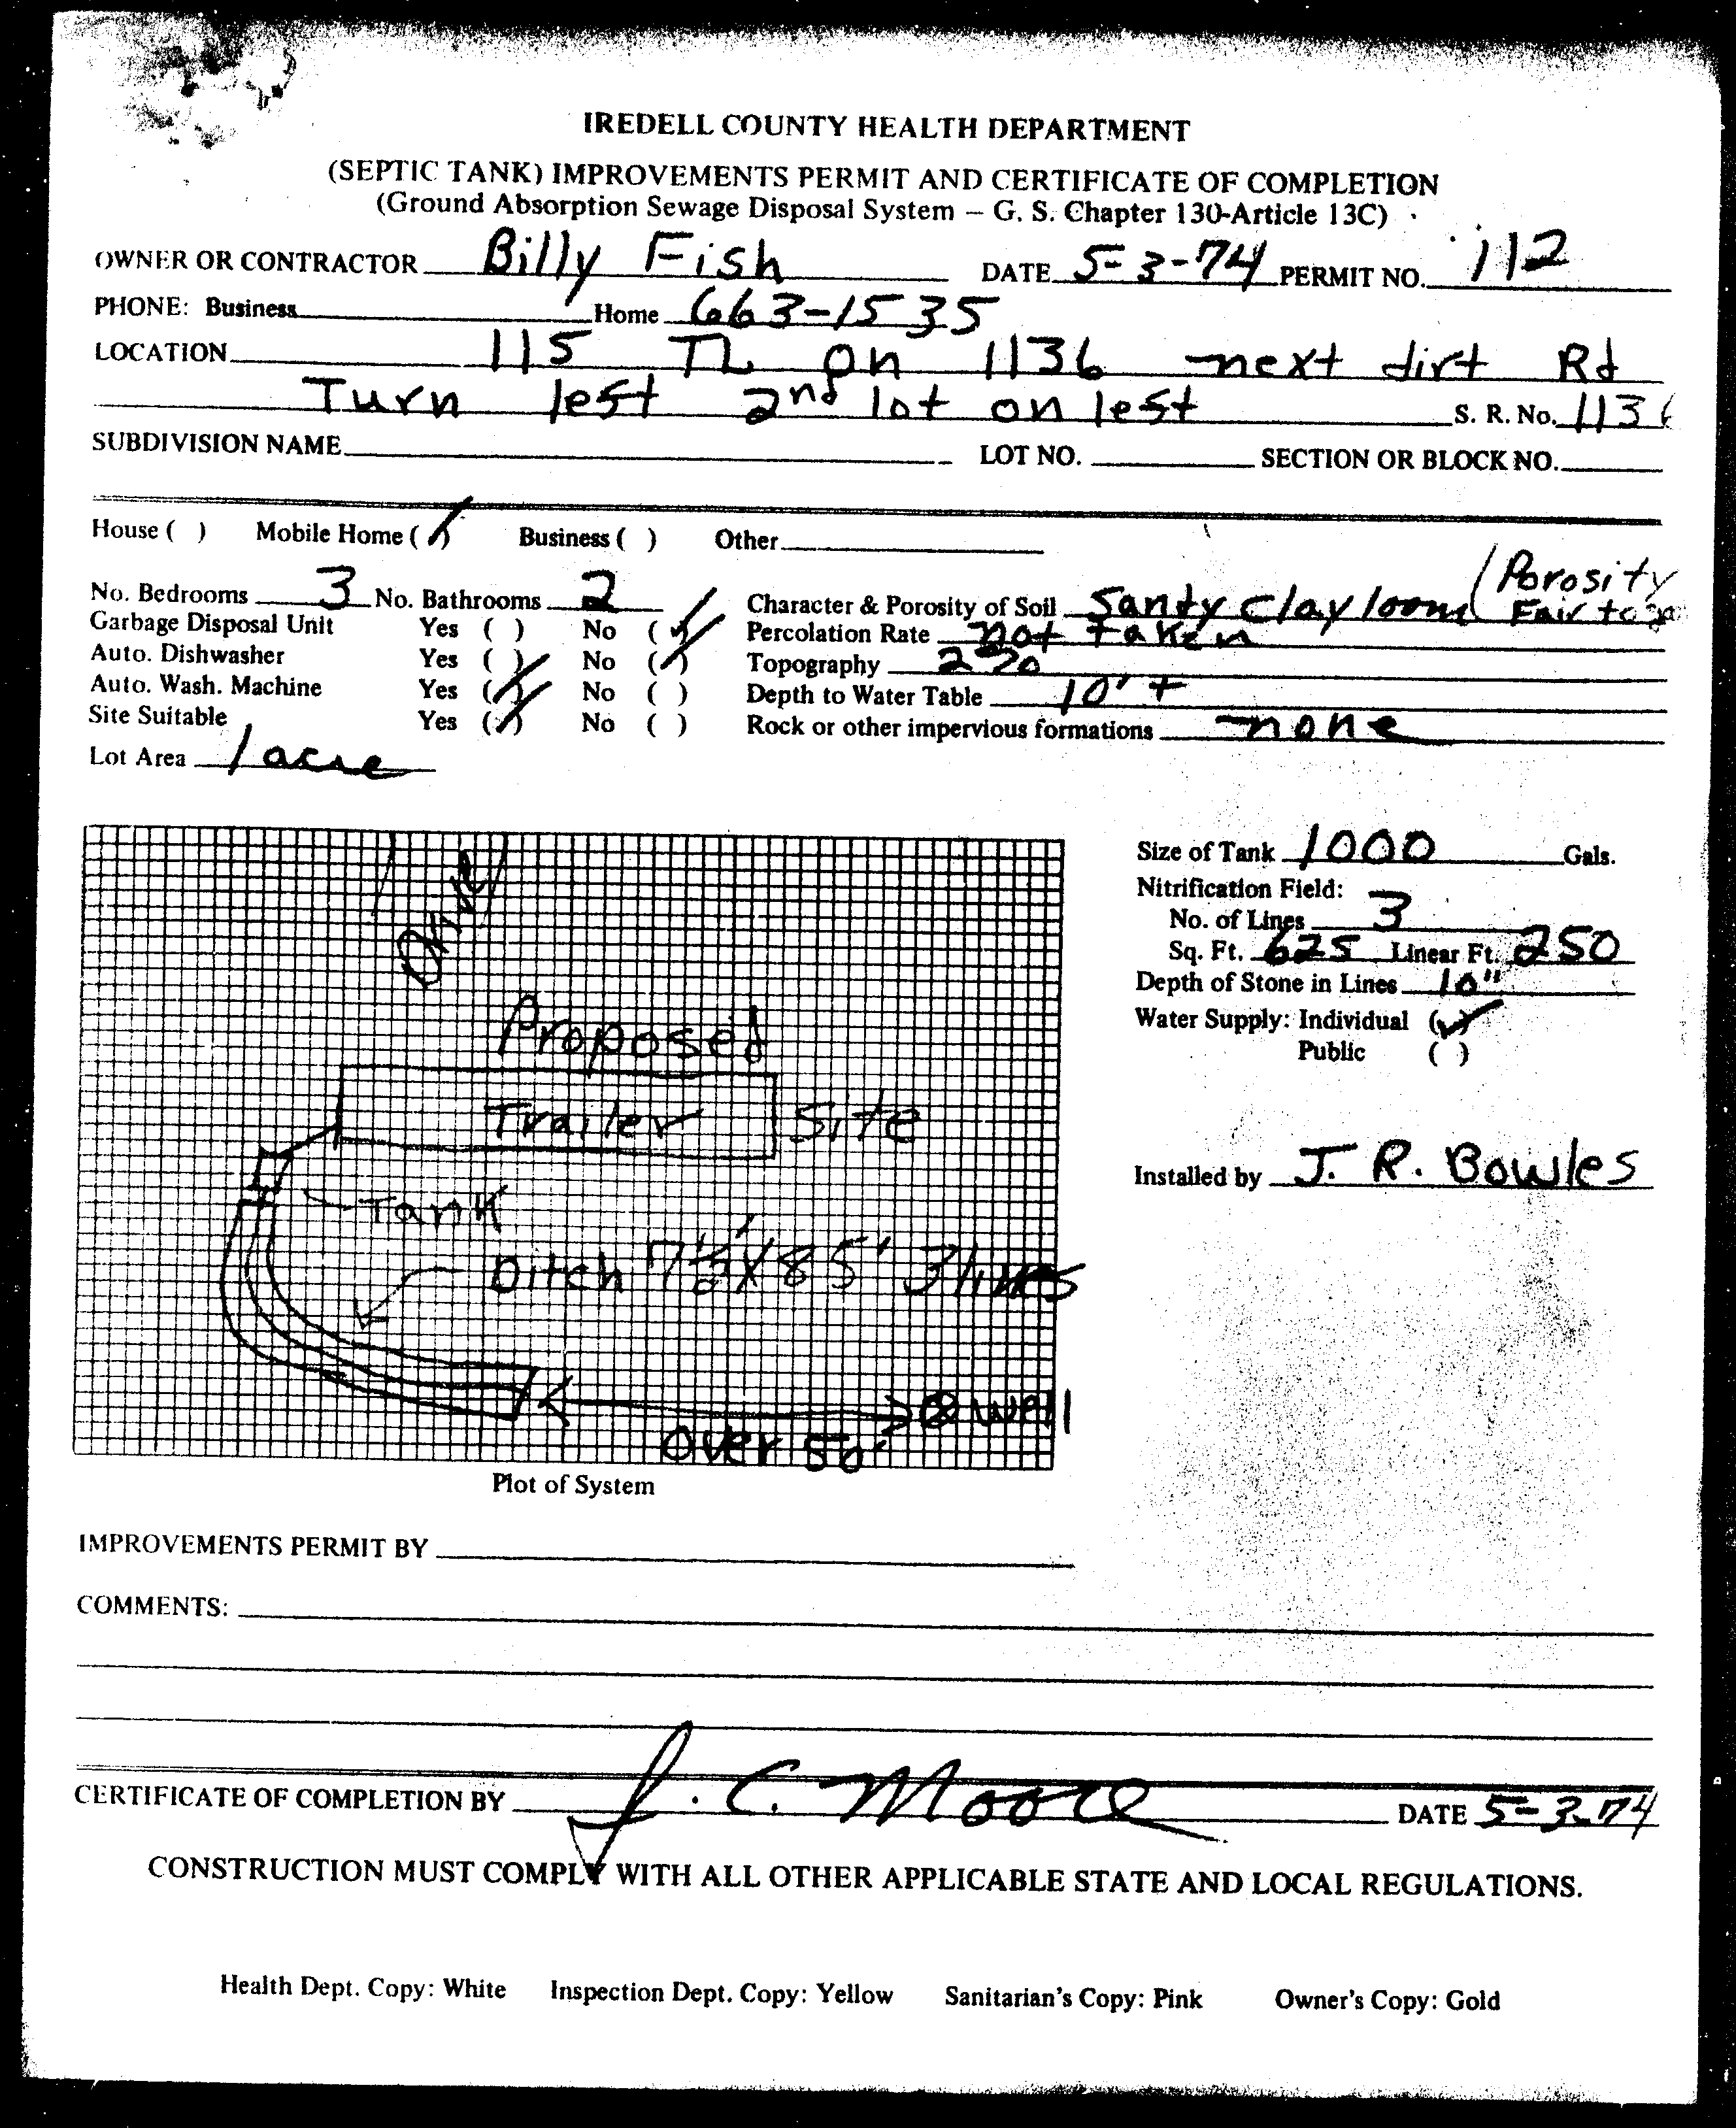 IREDELL COUNTY HEALTH DEPARTMENT
(SEPTIC TANK) IMPROVEMENTS PERMIT AND CERTIFICATE OF COMPLETION
(Ground Absorption Sewage Disposal System – G. S. Chapter 130-Article 13C)
OWNER OR CONTRACTOR Billy Fish DATE 5-3-74 PERMIT NO. 112
PHONE: Business Home 663-1535
LOCATION 115 TL on 1136 next dirt Rd
Turn left 2nd lot on left S. R. No. 1136
SUBDIVISION NAME LOT NO. SECTION OR BLOCK NO.
House ( ) Mobile Home (✓) Business ( ) Other
No. Bedrooms 3 No. Bathrooms 2 Character & Porosity of Soil Sandy clay loom (Porosity Fair to
Garbage Disposal Unit Yes ( ) No (✓) Percolation Rate not taken
Auto. Dishwasher Yes ( ) No (✓) Topography 2%
Auto. Wash. Machine Yes (✓) No ( ) Depth to Water Table 10' +
Site Suitable Yes (✓) No ( ) Rock or other impervious formations none
Lot Area 1 acre
Size of Tank 1000 Gals.
Nitrification Field:
No. of Lines 3
Sq. Ft. 625 Linear Ft. 250
Depth of Stone in Lines 10"
Water Supply: Individual (✓)
Public ( )
Installed by J. R. Bowles
Drive
Proposed
Trailer Site
Tank
Ditch 7½' X 85' 3 lines
⊗ well
over 50'
Plot of System
IMPROVEMENTS PERMIT BY
COMMENTS:
CERTIFICATE OF COMPLETION BY J. C. Moore DATE 5-3-74
CONSTRUCTION MUST COMPLY WITH ALL OTHER APPLICABLE STATE AND LOCAL REGULATIONS.
Health Dept. Copy: White Inspection Dept. Copy: Yellow Sanitarian's Copy: Pink Owner's Copy: Gold